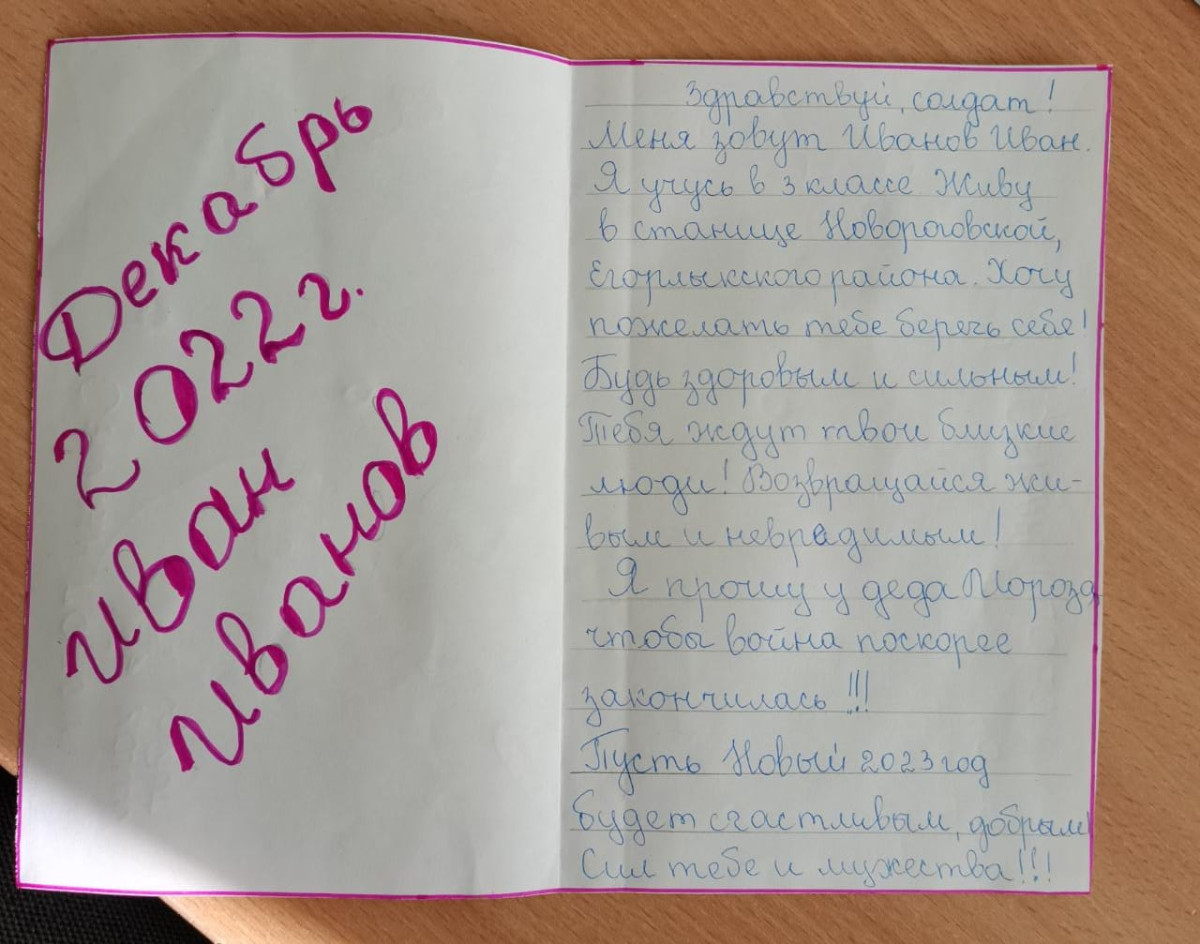 Декабрь
2022 г.
Иван
Иванов
Здравствуй, солдат!
Меня зовут Иванов Иван.
Я учусь в 3 классе Живу
в станице Новороговской,
Егорлыкского района. Хочу
пожелать тебе беречь себя!
Будь здоровым и сильным!
Тебя ждут твои близкие
люди! Возвращайся жи-
вым и невредимым!
Я прошу у деда Мороза,
чтобы война поскорее
закончилась!!!
Пусть Новый 2023 год
будет счастливым, добрым!
Сил тебе и мужества!!!